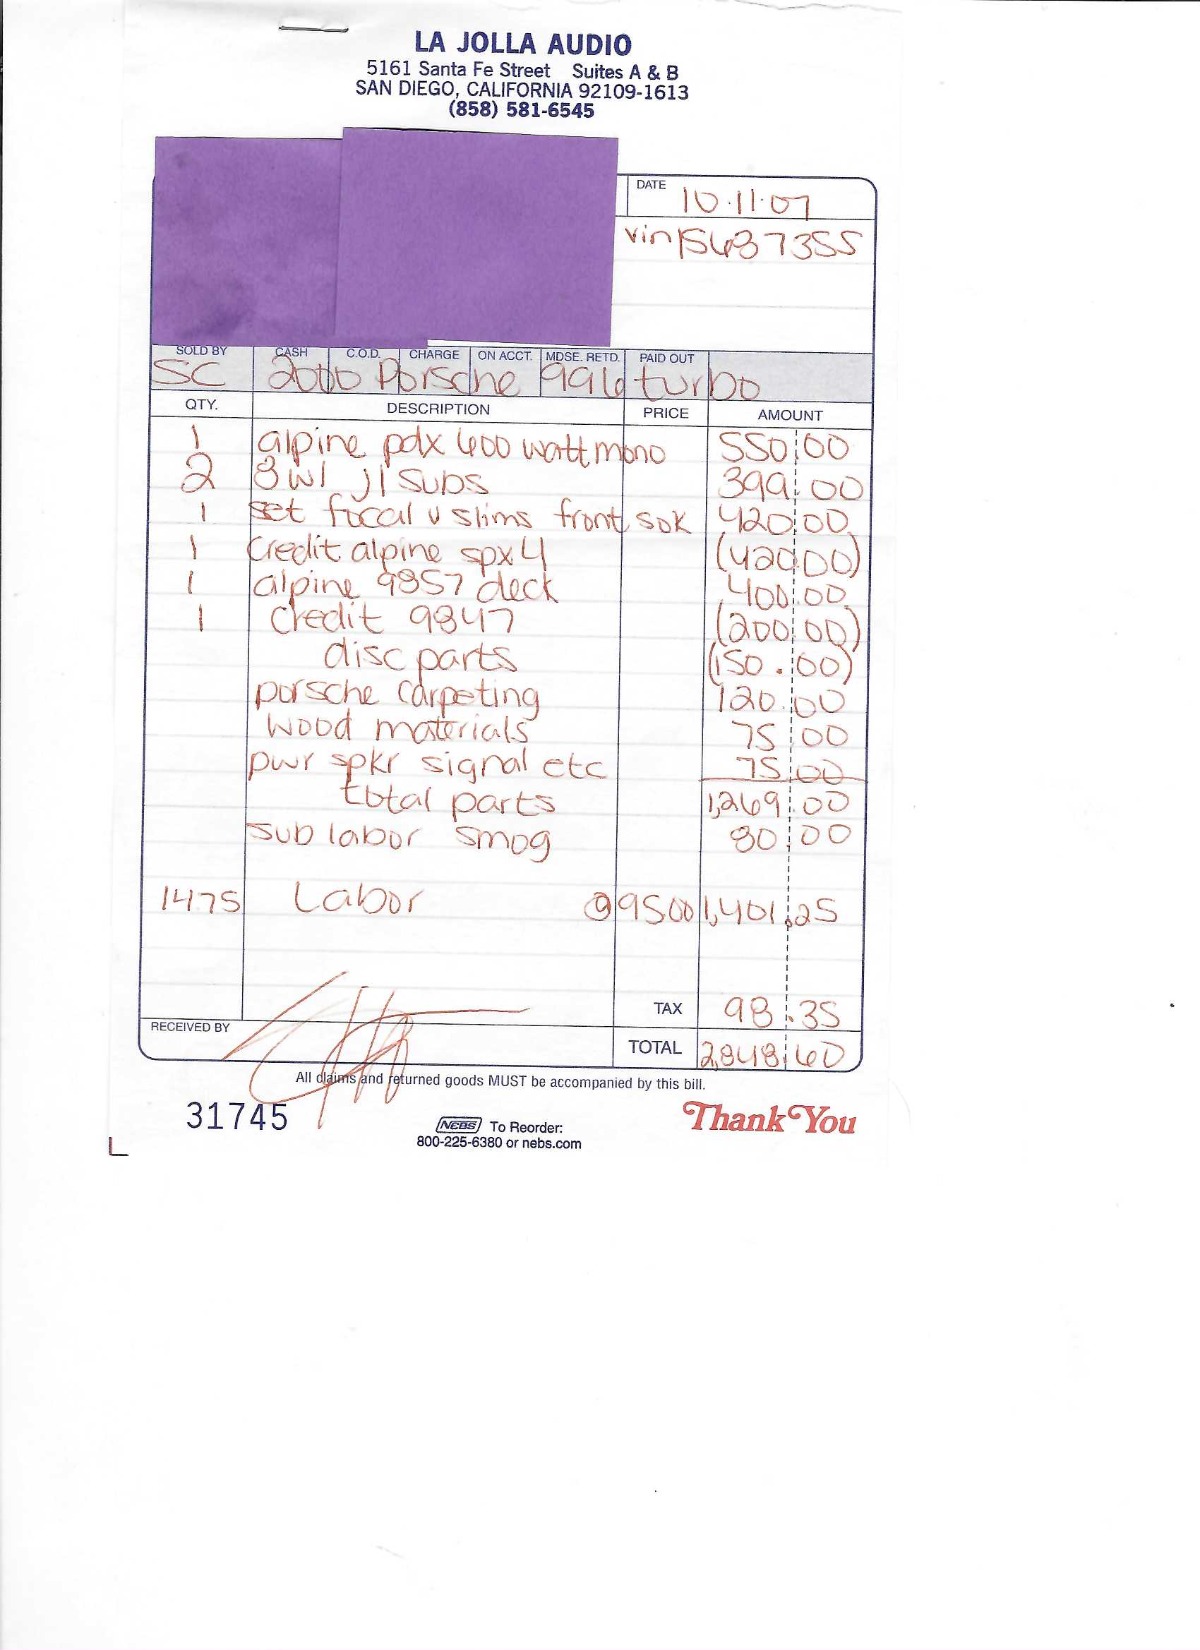 LA JOLLA AUDIO
5161 Santa Fe Street Suites A & B
SAN DIEGO, CALIFORNIA 92109-1613
(858) 581-6545
DATE 10.11.07
vin
SOLD BY CASH C.O.D. CHARGE ON ACCT. MDSE. RETD. PAID OUT
SC 2000 Porsche 996 turbo
QTY. DESCRIPTION PRICE AMOUNT
1 alpine pdx 600 watt mono 550.00
2 8w1 jl subs 399.00
1 set focal v slims front 420.00
1 credit alpine spx4 (420.00)
1 alpine 9857 deck 400.00
1 credit 9847 (200.00)
disc parts (150.00)
porsche carpeting 120.00
wood materials 75.00
pwr spkr signal etc 75.00
total parts 1,269.00
sub labor smog 80.00
1475 Labor @ 9500 1,401.25
TAX 98.35
RECEIVED BY
TOTAL 2,848.60
All claims and returned goods MUST be accompanied by this bill.
31745
NEBS To Reorder:
800-225-6380 or nebs.com
Thank You